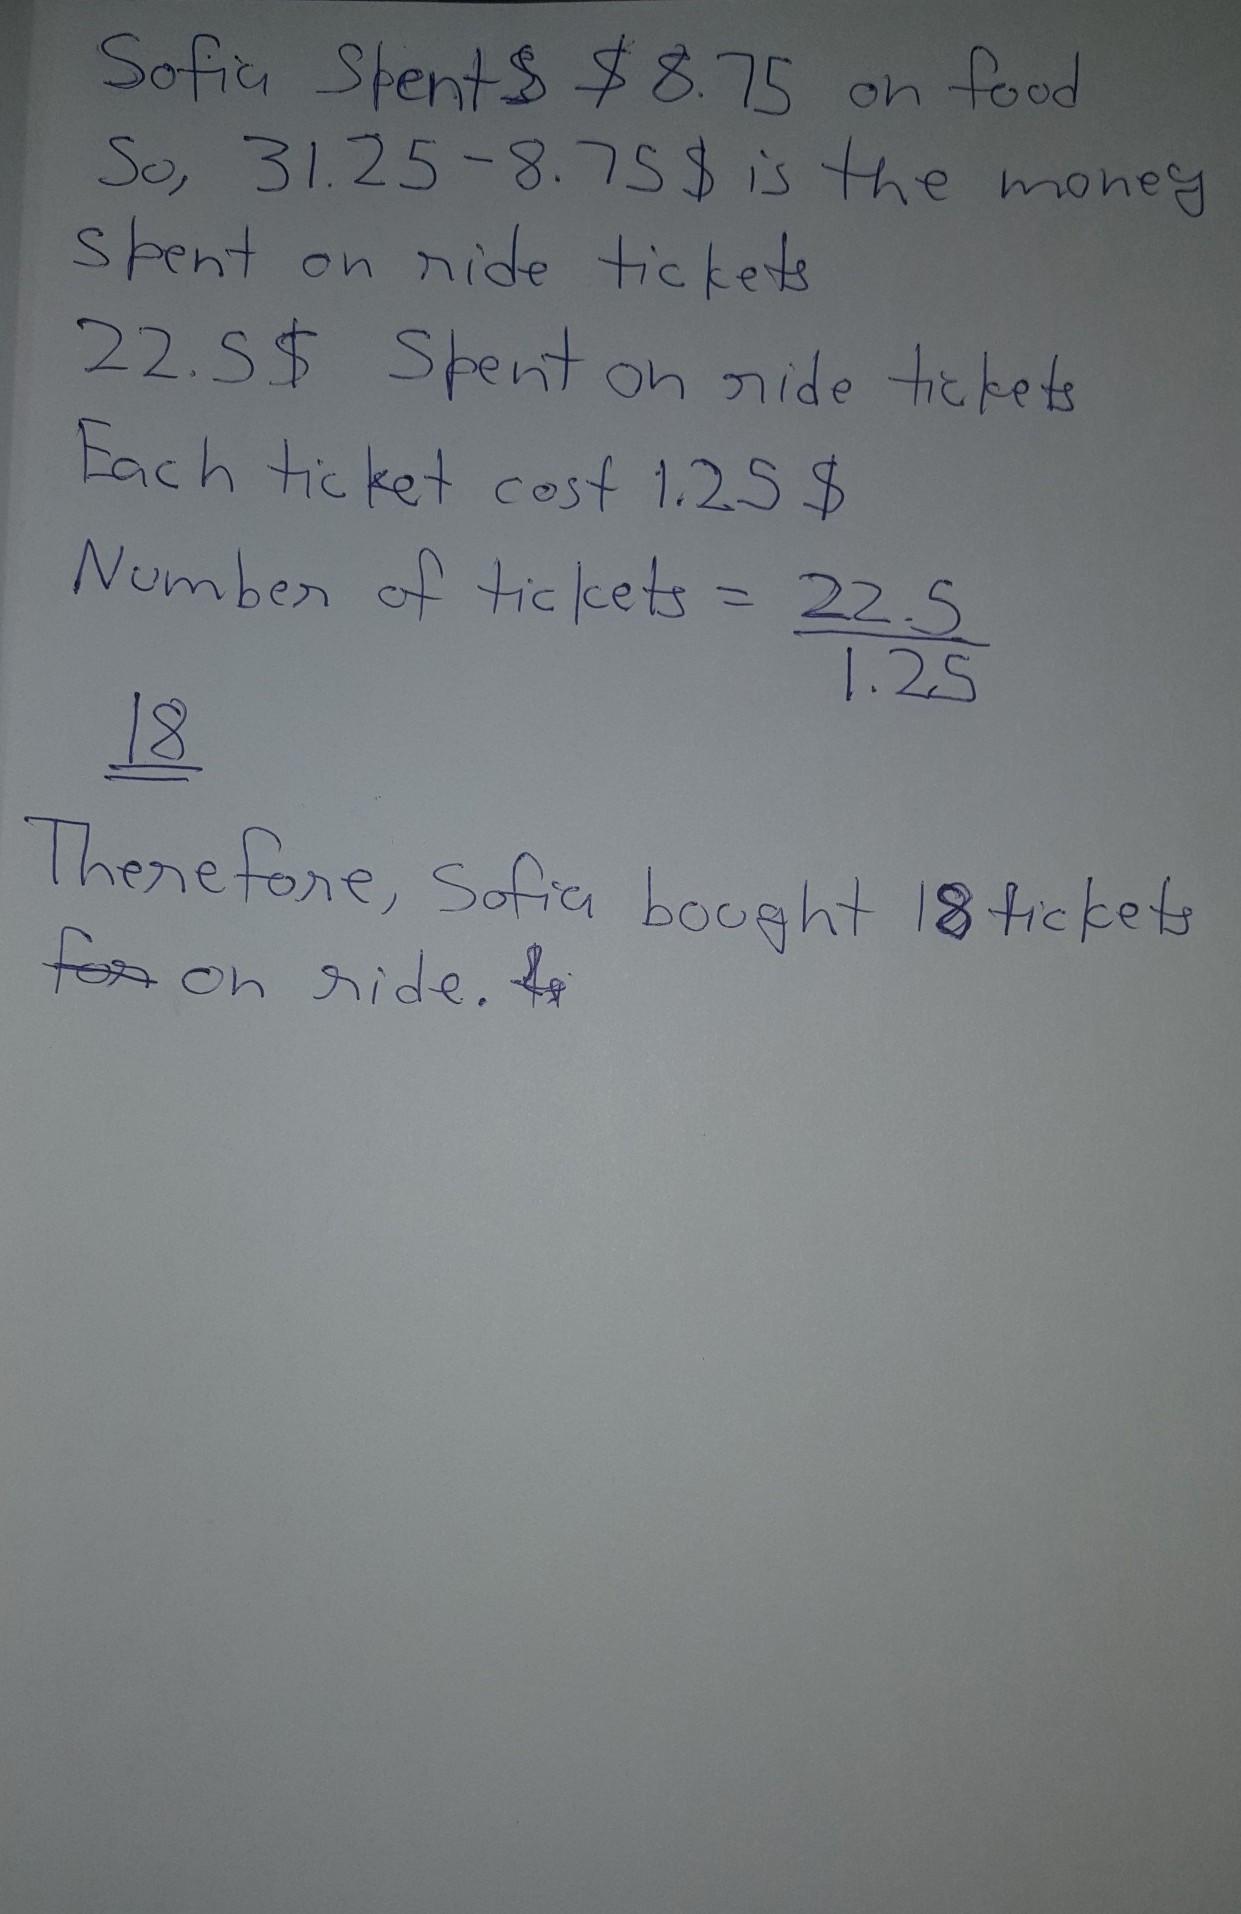 Sofia Spent $ $8.75 on food
So, 31.25-8.75$ is the money
spent on ride tickets
22.5$ Spent on ride tickets
Each ticket cost 1.25$
Number of tickets = 22.5
1.25
18
Therefore, Sofia bought 18 tickets
for on ride.